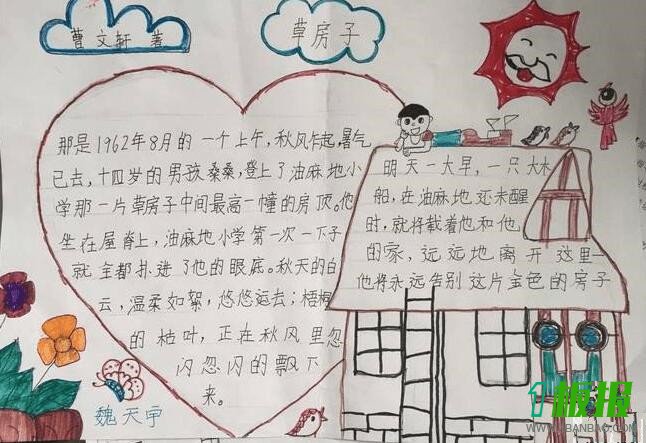 曹文轩 著
草房子
那是1962年8月的一个上午,秋风乍起,暑气
已去,十四岁的男孩桑桑,登上了油麻地小
学那一片草房子中间最高一幢的房顶。他
坐在屋脊上,油麻地小学第一次一下子
就全都扑进了他的眼底。秋天的白
云,温柔如絮,悠悠远去;梧桐
的枯叶,正在秋风里忽
闪忽闪的飘下
来。
明天一大早,一只大木
船,在油麻地还未醒
时,就将载着他和他
的家,远远地离开这里—
他将永远告别这片金色的房子
魏天宇
板报
WWW.1BANBAO.COM